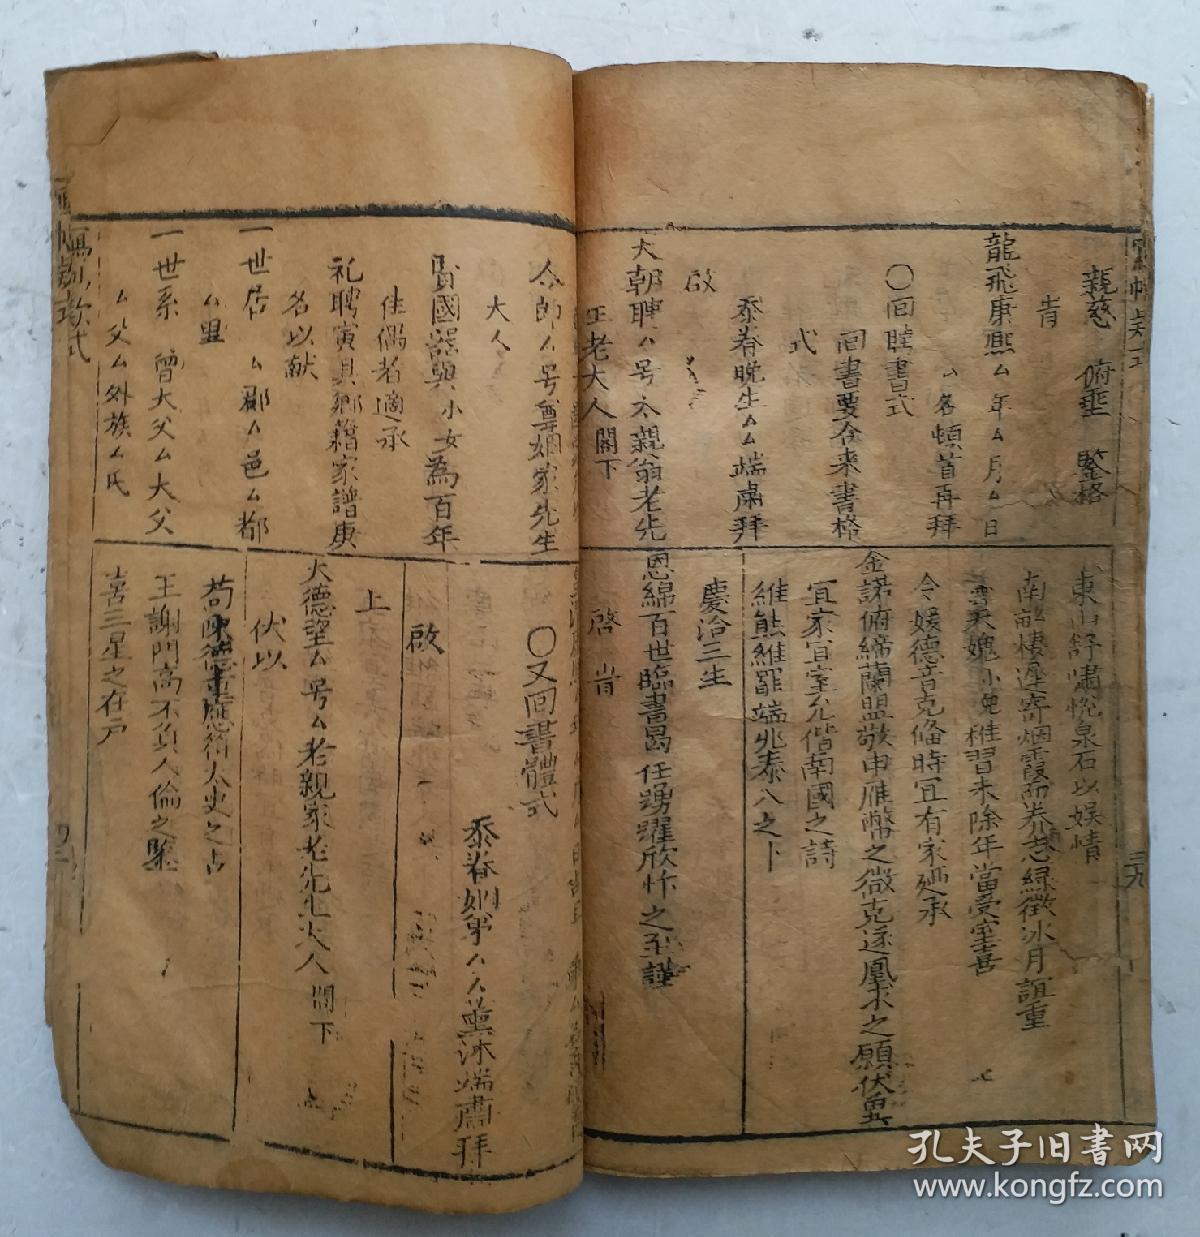 親慈 俯垂 鑒格
旹
龍飛康熙厶年厶月厶日
厶名頓首再拜
〇回聘書式
回書要合來書格
式
忝眷晚生厶厶端肅拜
啟
大朝聘厶号太親翁老先
王老大人閣下
東山舒嘯悅泉石以娛情
南
棲遲寄烟霞而养志緑徵冰月誼重
令媛德音克脩時宜有家廼承
金諾俯締蘭盟敬申雁幣之微克遂凰求之願伏冀
宜家宜室允偕南國之詩
維熊維羆端兆泰人之卜
慶洽三生
恩綿百世臨書曷任踴躍欣忭之至謹
啓 旹
三九
令郎厶号尊姻家先生
大人
賢國器與小女為百年
佳偶者適承
礼聘寅具鄉藉家譜庚
名以献
一世居 厶郡厶邑厶都
厶里
一世系 曾大父厶大父
厶父厶外族厶氏
〇又回書體式
忝眷姻弟厶厶薰沐端肅拜
啟
上
大德望厶号厶老親家老先生大人閣下
伏以
荀陳德重應符太史之占
王謝門高不負人倫之鑒
喜三星之在戶
孔夫子旧書网
www.kongfz.com